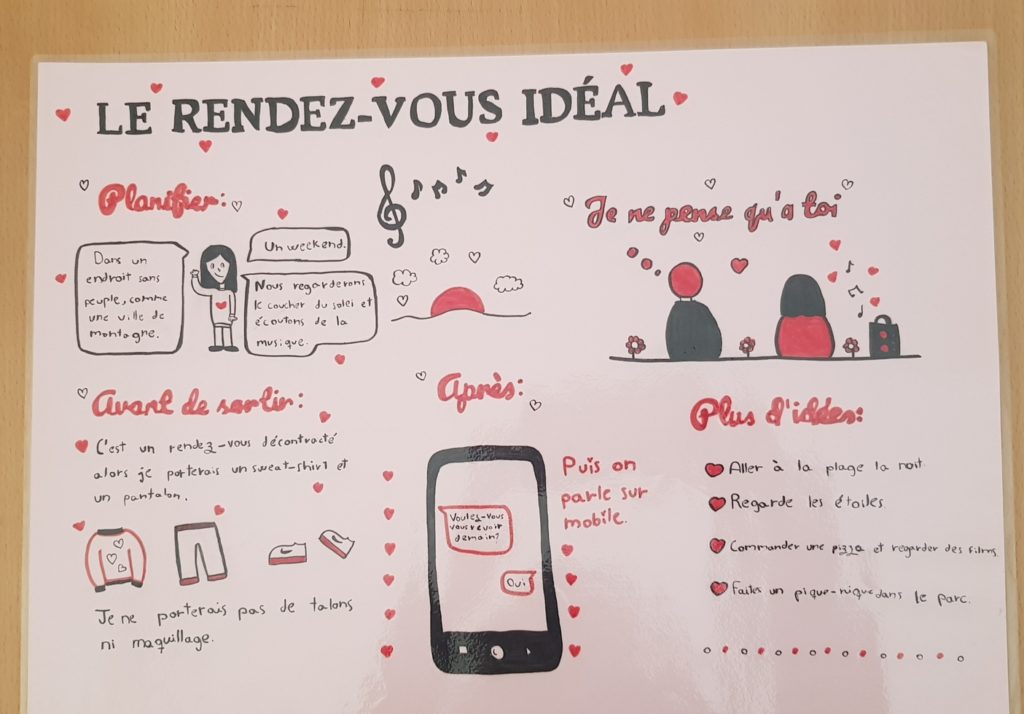 LE RENDEZ-VOUS IDÉAL
Planifier:
Dans un
endrait sans
peuple, comme
une ville de
montagne.
Un weekend.
Nous regarderons
le coucher du solei et
écoutons de la
musique.
Je ne pense qu'a toi
Avant de sortir:
C'est un rendez-vous décontracté
alors je porterais un sweat-shirt et
un pantalon.
Je ne porterais pas de talons
ni maquillage.
Après:
Voulez-vous
vous revoir
demain?
Oui
Puis on
parle sur
mobile.
Plus d'idées:
Aller à la plage la noit.
Regarde les étoiles.
Commander une pizza et regarder des films.
Faites un pique-nique dans le parc.